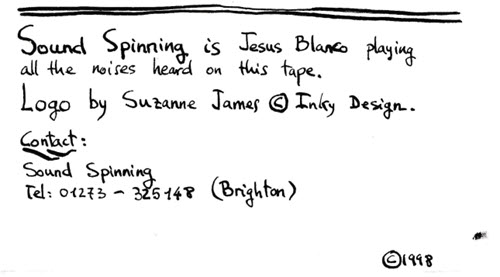 Sound Spinning is Jesus Blanco playing
all the noises heard on this tape.
Logo by Suzanne James © Inky Design.
Contact:
Sound Spinning
Tel: 01273 - 325148 (Brighton)
©1998